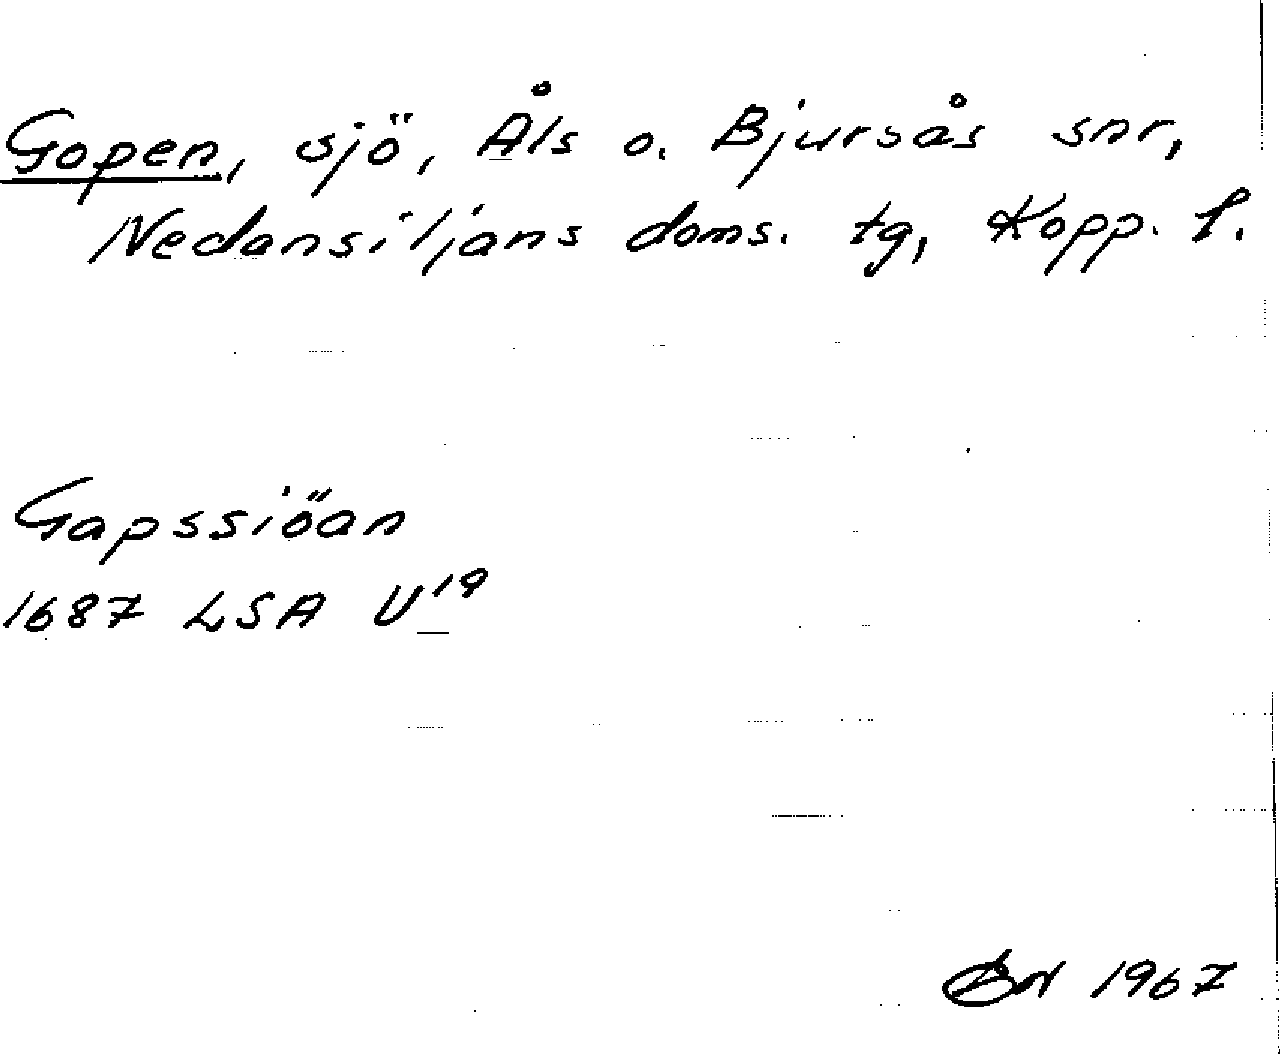 Gopen, sjö, Åls o. Bjursås snr,
Nedansiljans doms. tg, Kopp. l.
Gapssiöan
1687 LSA U19
1967